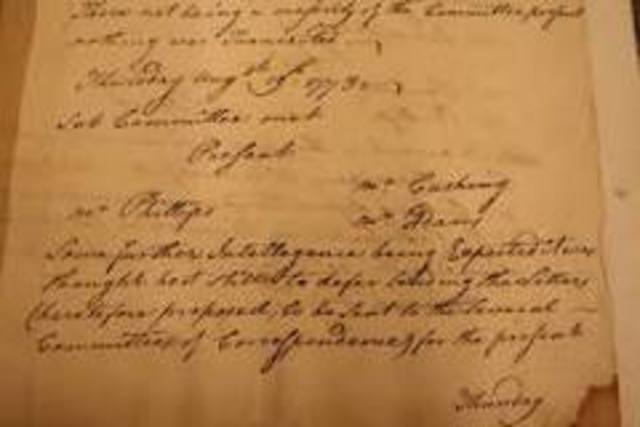 There not being a majority of the Committee present
nothing was Transacted
Thursday Augt 1773
Sub Committee met
Present
Mr Cushing
Mr Phillips
Mr Adams
Some further Intellegence being Expected it was
thought best still to defer sending the Letters
(heretofore proposed, to be sent to the several
Committees of Correspondence) for the present
Thursday